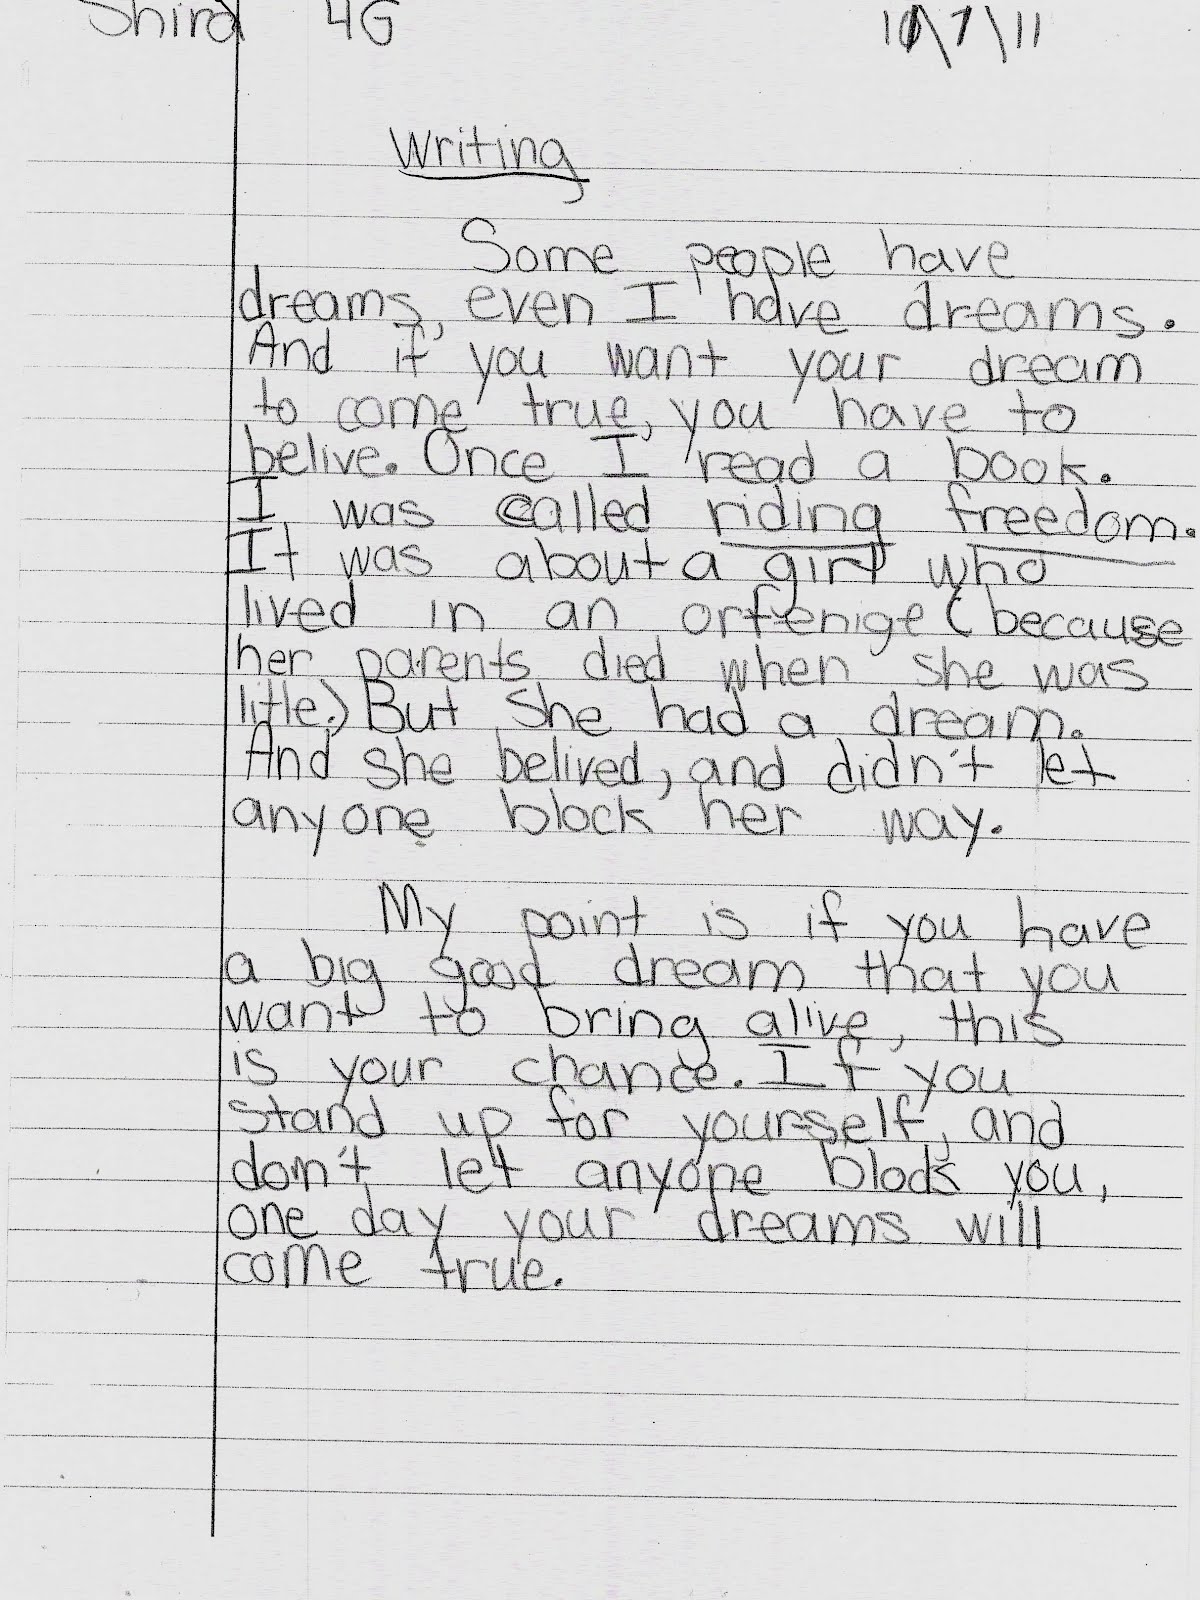 Shira 4G 10\7\11
Writing
Some people have
dreams, even I have dreams.
And if you want your dream
to come true, you have to
belive. Once I read a book.
I was called riding freedom.
It was about a girl who
lived in an orfenige (because
her parents died when she was
little.) But she had a dream.
And she belived, and didn't let
anyone block her way.
My point is if you have
a big good dream that you
want to bring alive, this
is your chance. If you
stand up for yourself, and
don't let anyone block you,
one day your dreams will
come true.